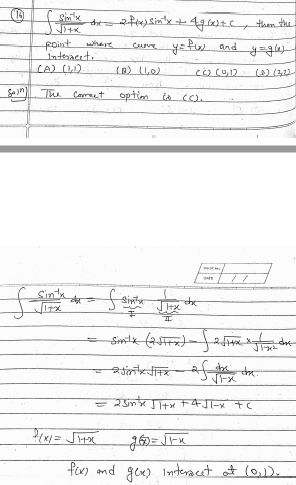 (16) ∫ sin⁻¹x/√1+x dx = 2f(x) sin⁻¹x + 4g(x) + c, then the
point where curve y=f(x) and y=g(x)
Intersect.
(A) (1,1) (B) (1,0) (C) (0,1) (D) (2,2)
Solⁿ) The correct option is (C).
PAGE No.
DATE / /
∫ sin⁻¹x/√1+x dx = ∫ sin⁻¹x 1/√1+x dx
I II
= sin⁻¹x (2√1+x) - ∫ 2√1+x × 1/√1-x² dx
= 2sin⁻¹x √1+x - 2∫ dx/√1-x dx.
= 2sin⁻¹x √1+x + 4√1-x + c
f(x) = √1+x g(x) = √1-x
f(x) and g(x) intersect at (0,1).